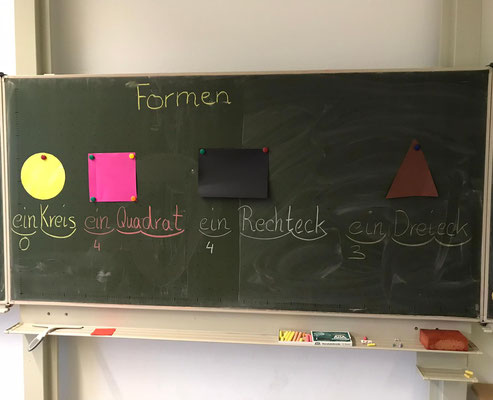 Formen
ein Kreis ein Quadrat ein Rechteck ein Dreieck
0 4 4 3